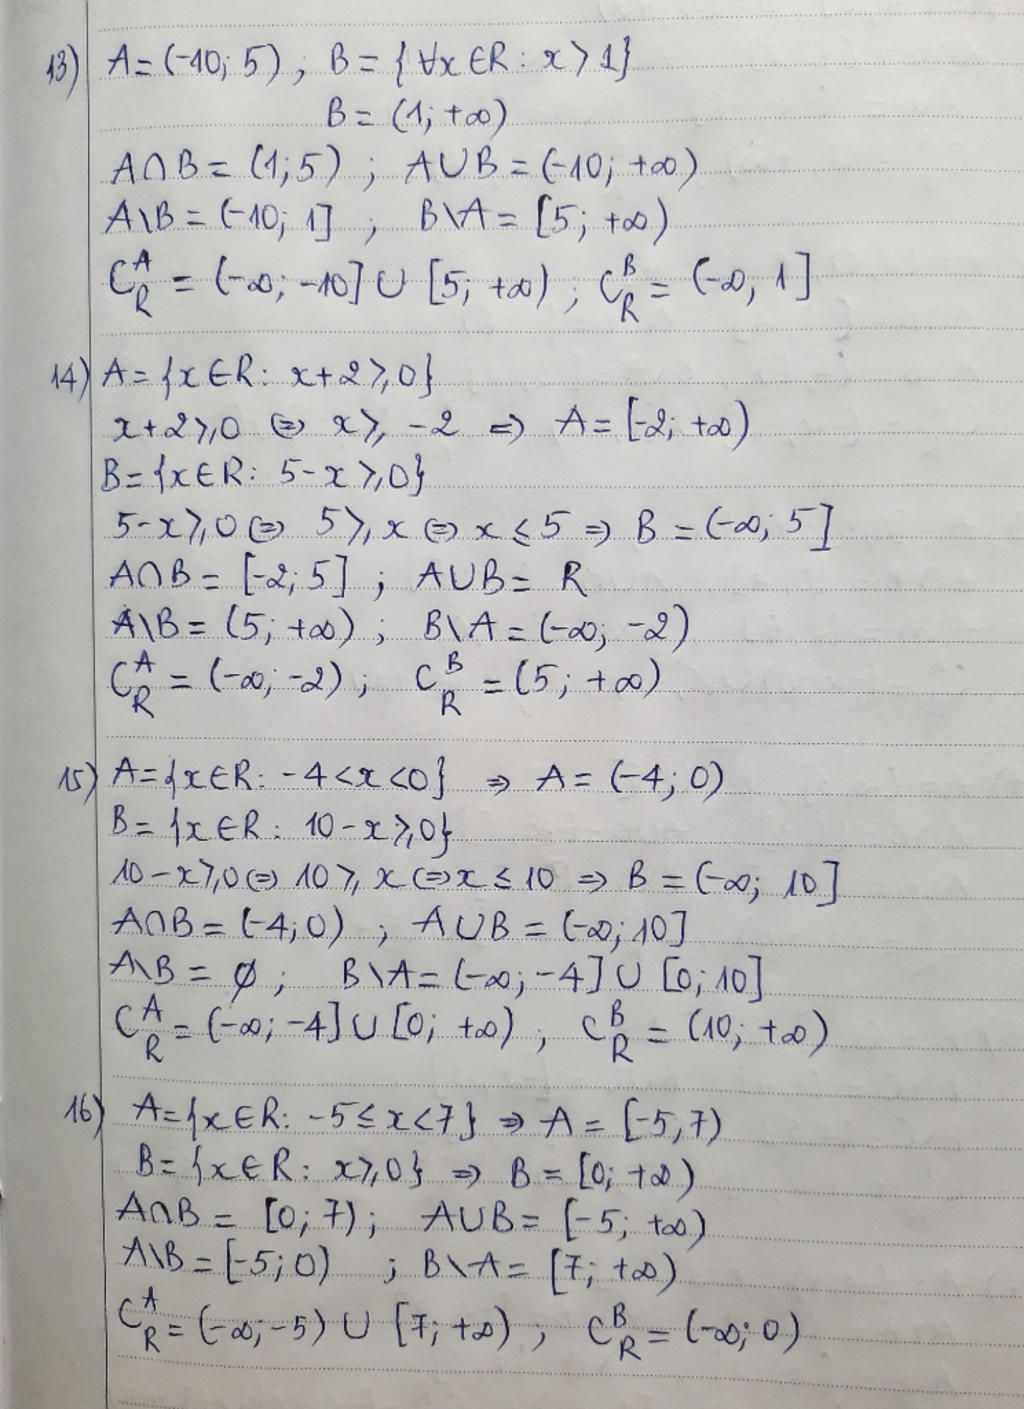 13) A = (-10; 5), B = {∀x ∈ R: x > 1}
B = (1; +∞)
A∩B = (1; 5) ; A∪B = (-10; +∞)
A\B = (-10; 1] ; B\A = [5; +∞)
C_R^A = (-∞; -10] ∪ [5; +∞) ; C_R^B = (-∞, 1]
14) A = {x ∈ R: x+2 ⩾ 0}
x+2 ⩾ 0 ⇔ x ⩾ -2 ⇒ A = [-2; +∞)
B = {x ∈ R: 5-x ⩾ 0}
5-x ⩾ 0 ⇔ 5 ⩾ x ⇔ x ≤ 5 ⇒ B = (-∞; 5]
A∩B = [-2; 5] ; A∪B = R
A\B = (5; +∞) ; B\A = (-∞; -2)
C_R^A = (-∞; -2) ; C_R^B = (5; +∞)
15) A = {x ∈ R: -4 < x < 0} ⇒ A = (-4; 0)
B = {x ∈ R: 10-x ⩾ 0}
10-x ⩾ 0 ⇔ 10 ⩾ x ⇔ x ≤ 10 ⇒ B = (-∞; 10]
A∩B = (-4; 0) ; A∪B = (-∞; 10]
A\B = ∅ ; B\A = (-∞; -4] ∪ [0; 10]
C_R^A = (-∞; -4] ∪ [0; +∞) ; C_R^B = (10; +∞)
16) A = {x ∈ R: -5 ≤ x < 7} ⇒ A = [-5, 7)
B = {x ∈ R: x ⩾ 0} ⇒ B = [0; +∞)
A∩B = [0; 7) ; A∪B = [-5; +∞)
A\B = [-5; 0) ; B\A = [7; +∞)
C_R^A = (-∞; -5) ∪ [7; +∞) ; C_R^B = (-∞; 0)